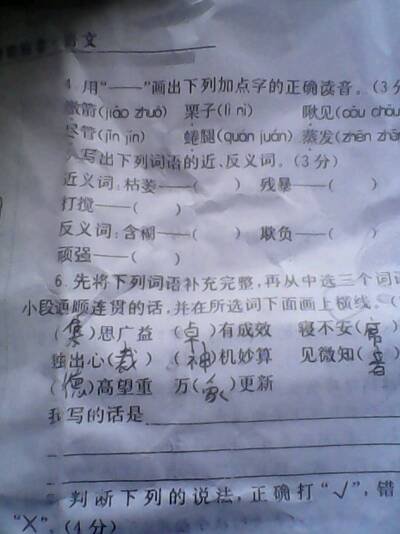 文
4. 用“——”画出下列加点字的正确读音。(3分
缴箭(jiǎo zhuó) 栗子(lì ní) 瞅见(cǒu chǒu
尽管(jǐn jìn) 蜷腿(quán juán) 蒸发(zhēn zhēn
写出下列词语的近、反义词。(3分)
近义词:枯萎——( ) 残暴——( )
打搅——( )
反义词:含糊——( ) 欺负——( )
顽强——( )
6. 先将下列词语补充完整,再从中选三个词语
小段通顺连贯的话,并在所选词下面画上横线。(
(集)思广益 (卓)有成效 寝不安(席
独出心(裁) (神)机妙算 见微知(音
(德)高望重 万(象)更新
我写的话是
判断下列的说法,正确打“√”,错
“×”。(4分)